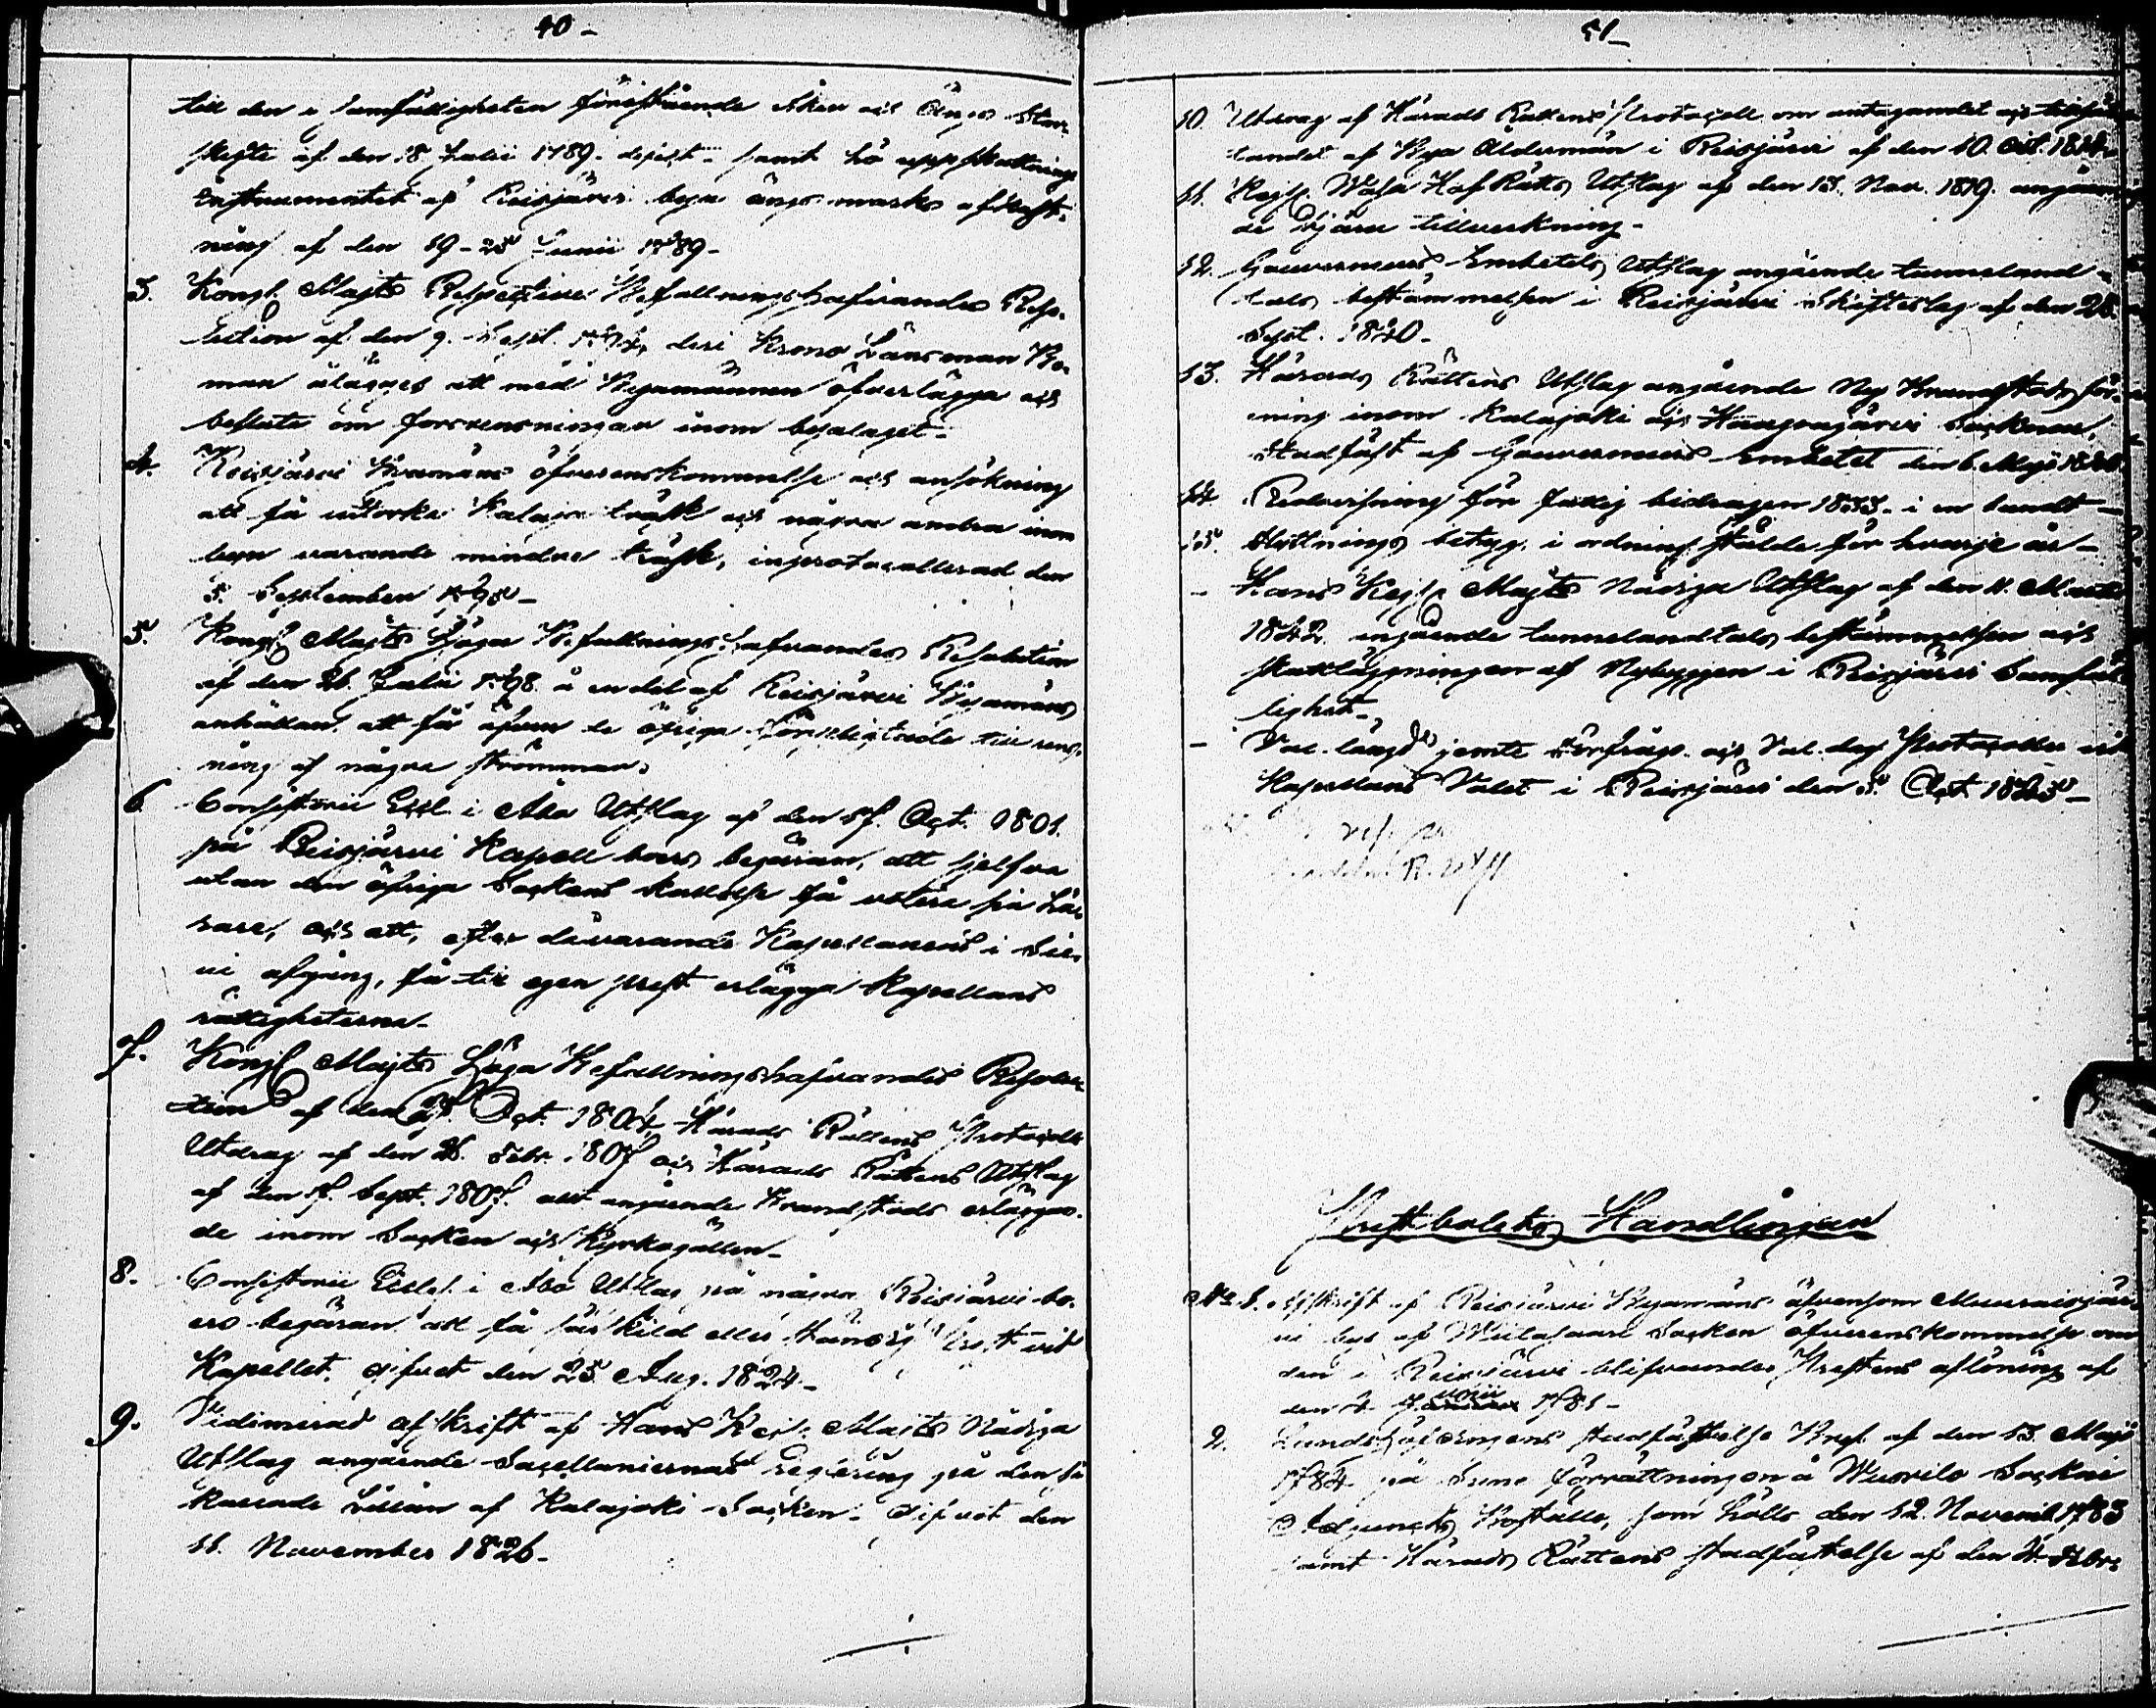 40 -
till den i samfälligheten förestående åker och Ängs Stor-
skifte af den 18 Julii 1789. dejist. samt hö uppskattnings
Instrumentet af Reisjärvi byn ängs marks afkast-
ning af den 19 - 25 Junii 1789 -
3. Kongl. Majts Respective Befallningshafvandes Reso-
lution af den 9. Sept. 1794, deri Krono Länsman Bo-
man ålägges att med Byamännen öfverlägga och
besluta om forsrensningar inom byalaget -
4. Reisjärvi Byamäns öfverenskommelse och ansökning
att få uttorka Kalaja träsk och några andra inom
byn varande mindre träsk, inprotocollerad den
5. September 1795 -
5. Kongl. Majts höga Befallningshafvandes Resolution
af den 26. Julii 1798 å en del af Reisjärvi Byamäns
anhållan att få äfven de öfriga förpligtade till rens-
ning af några strömmar.
6. Consistorii Eccl. i Åbo Utslag af den 17. Oct. 1801.
på Reisjärvi Kapell boers begäran, att sjelfva
utan den öfriga Sockens kallelse få votera på Lä-
rare, och att, efter dåvarande Kapellanens i Sie-
vi afgång, få till egen prest erlägga Kapellans
rättigheterna -
7. Kongl. Majts höga Befallningshafvandes Resolu-
tion af den 27. Oct. 1804, Härads Rättens Protocolls
Utdrag af den 26. Febr. 1807 och Härads Rättens Utslag
af den 17. Sept. 1807. allt angående Brandstods erläggan-
de inom Socken och Kyrkogällen -
8. Consistorii Eccles. i Åbo Utslag på några Reisjärvi bo-
ers begäran att få särskild eller ständig Prest vid
Kapellet. gifvet den 25 Aug. 1824 -
9. Vidimerad afskrift af Hans Kejs. Majts Nådiga
Utslag angående Sacellaniernas reglering på den så
kallade Lillån af Kalajoki Socken. Gifvet den
11. November 1826 -
51 -
10. Utdrag af Härads Rättens Protocoll om antagandet och
tandet af Bya Ålderman i Reisjärvi af den 10. Oct. 1814.
11. Kejs. Wasa Hof Rätts Utslag af den 13. Nov. 1819. angåen-
de tjäru tillverkning -
12. Gouverneurs Embetets Utslag angående tunneland-
tals bestämmelsen i Reisjärvi Skifteslag af den 28.
Sept. 1840 -
13. Härads Rättens Utslag angående Ny Brandstods för-
ening inom Kalajoki och Haapajärvi Socknar,
Stadfäst af Gouverneurs Embetet den 6. Maji
14. Redovisning för fattig bidragen 1833. i en bundt -
15. Slåttnings betyg. i ordning stälde för hvarje år -
- Hans Kejs. Majts Nådiga Utslag af den 11. Martii
1842. angående tunnelandtals bestämmelsen och
skattläggningen af Nybyggen i Reisjärvi Samfäl-
lighet -
- Val längd jemte förfrågs. och Val dag Protocoller vid
Kapellans Valet i Reisjärvi den 5. Oct 1845 -
Prestbolets Handlingar
No. 1. Afskrift af Reisjärvi Byamäns äfvensom Muuraisjär-
vi bys af Wiitasaari Socken öfverenskommelse om
den i Reisjärvi blifvande Prestens aflöning af
den 4. Junii 1781 -
2. Landshöfdingens stadfästelse Bref af den 13. Maji
1784. på Syne förrättningen å Wuorila Sockne
Adjuncts Boställe, som hölls den 12. Novemb. 1783
samt Härads Rättens stadfästelse af den 4. Febr.